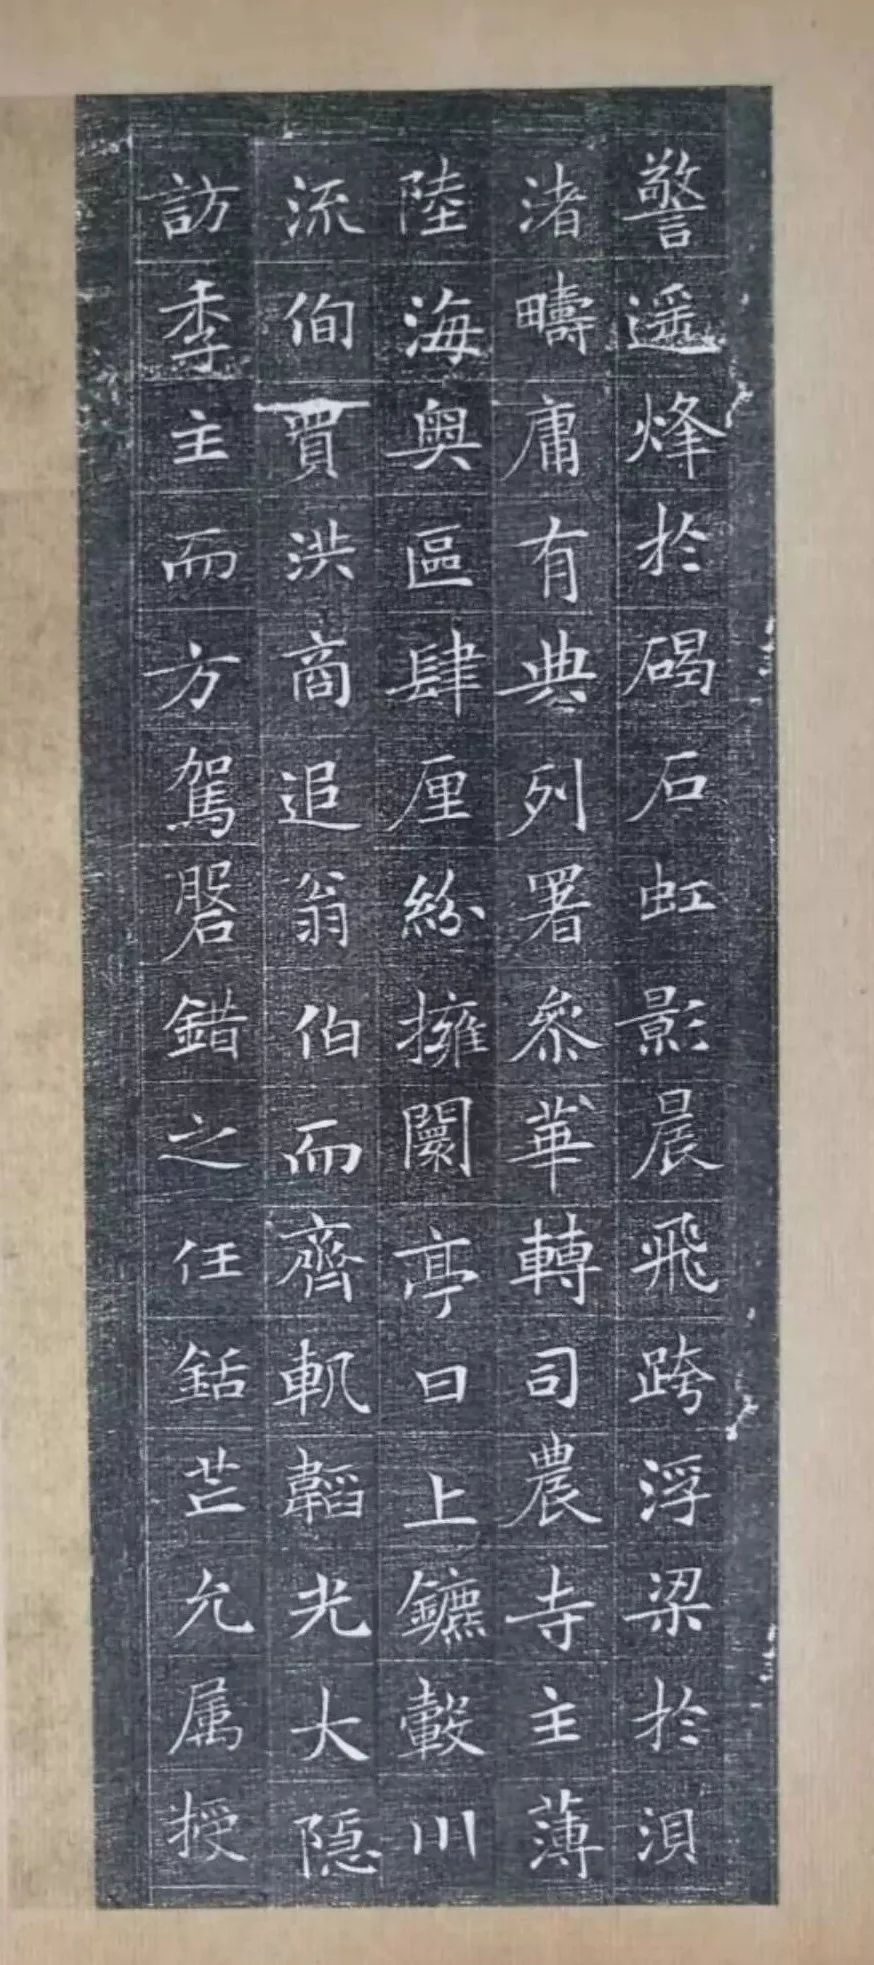 警遥烽於碣石虹影晨飛跨浮梁於浿
渚疇庸有典列署叅華轉司農寺主薄
陸海奥區肆厘紛擁闤亭日上鑣轂川
流伺買洪商追翁伯而齊軌韜光大隠
訪季主而方駕磐錯之任銛芒允属授